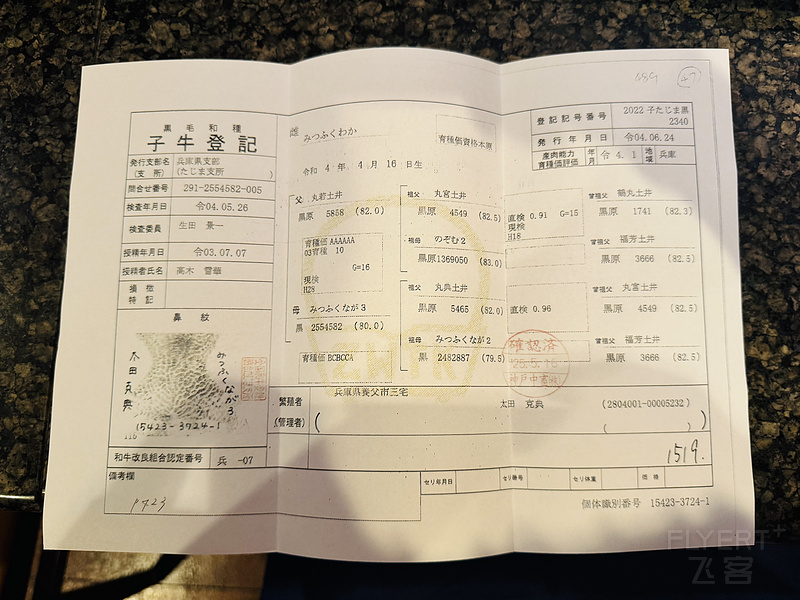 黒毛和種
子牛登記
発行支部名 兵庫県支部
(支 所) (たじま支所 )
問合せ番号 291-2554582-005
検査年月日 令04.05.26
検査委員 生田 景一
授精年月日 令03.07.07
授精者氏名 高木 雪華
損徴
特記
鼻紋
太田克典
みつふくなが3
15423-3724-1
和牛改良組合認定番号 兵 -07
備考欄
雌 みつふくわか
育種価資格本原
令和 4年 4月 16日生
登記記号番号 2022 子たじま黒
2340
発行年月日 令04.06.24
産肉能力 年 令 4. 1 地 兵庫
育種価評価 月 域
父 丸若土井
黒原 5858 (82.0)
育種価 AAAAAA
03育種 10
G=16
現検
H28
母 みつふくなが3
黒 2554582 (80.0)
育種価 BCBCCA
祖父 丸宮土井
黒原 4549 (82.5)
祖母 のぞむ2
黒原1369050 (83.0)
祖父 丸典土井
黒原 5465 (82.0)
祖母 みつふくなが2
黒 2482887 (79.5)
直検 0.91 G=15
現検
H18
直検 0.96
曽祖父 鶴丸土井
黒原 1741 (82.3)
曽祖父 福芳土井
黒原 3666 (82.5)
曽祖父 丸宮土井
黒原 4549 (82.5)
曽祖父 福芳土井
黒原 3666 (82.5)
確認済
神戸中
繁殖者 兵庫県養父市三宅
太田 克典 (2804001-00005232)
(管理者) ( )
( )
1519.
セリ年月日 セリ番号 セリ体重 価格
個体識別番号 15423-3724-1
FLYERT+
飞客